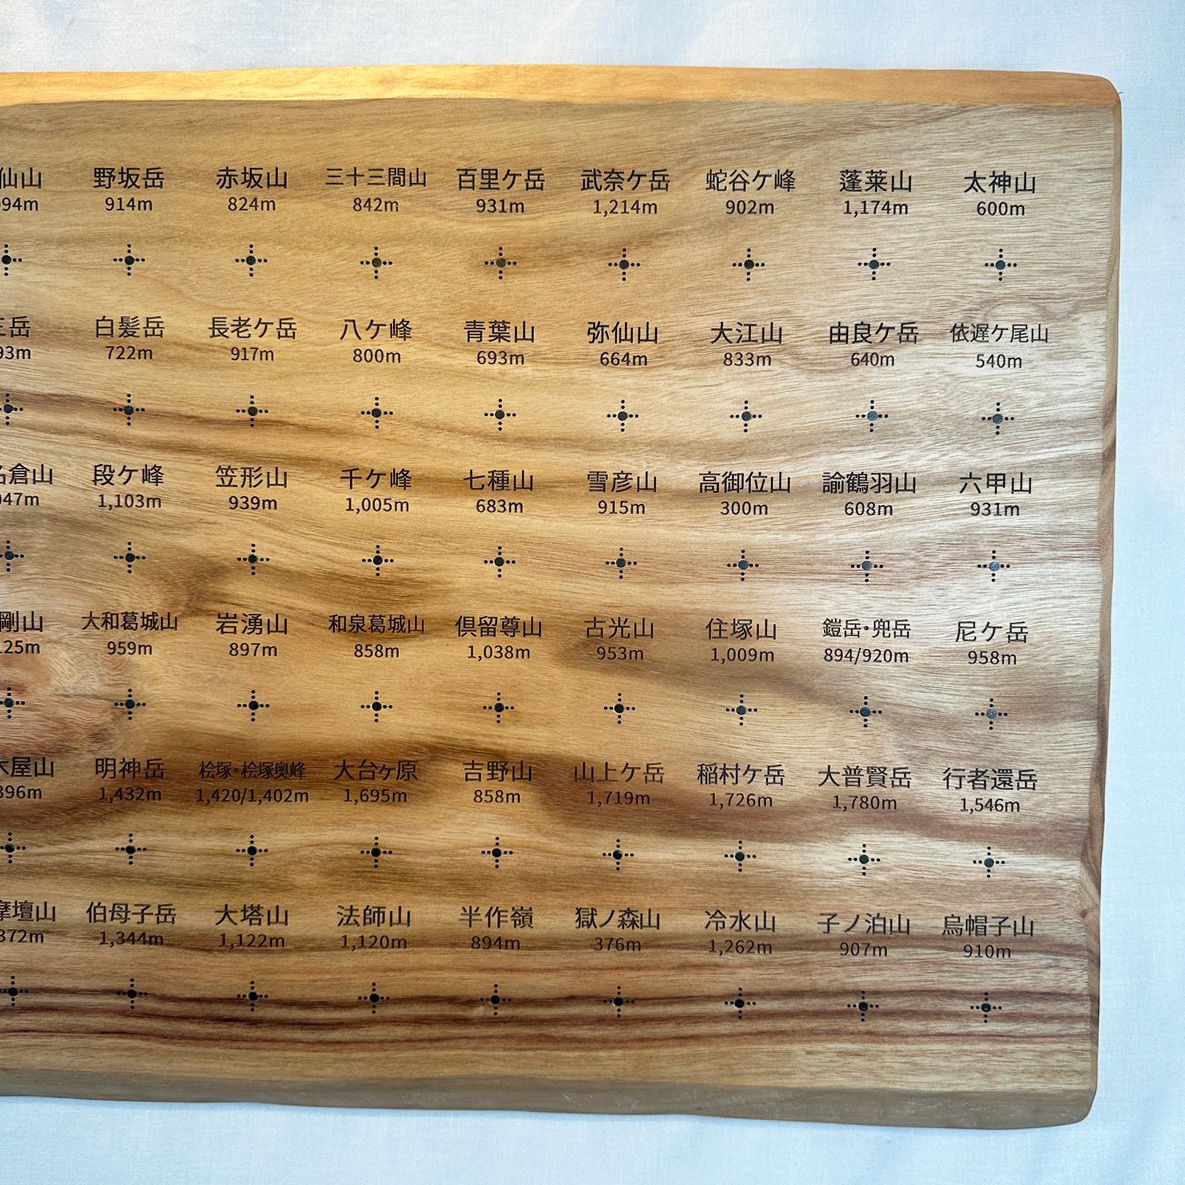 仙山 野坂岳 赤坂山 三十三間山 百里ケ岳 武奈ケ岳 蛇谷ケ峰 蓬莱山 太神山
094m 914m 824m 842m 931m 1,214m 902m 1,174m 600m
三岳 白髪岳 長老ケ岳 八ケ峰 青葉山 弥仙山 大江山 由良ケ岳 依遅ケ尾山
93m 722m 917m 800m 693m 664m 833m 640m 540m
名倉山 段ケ峰 笠形山 千ケ峰 七種山 雪彦山 高御位山 諭鶴羽山 六甲山
047m 1,103m 939m 1,005m 683m 915m 300m 608m 931m
剛山 大和葛城山 岩湧山 和泉葛城山 倶留尊山 古光山 住塚山 鎧岳・兜岳 尼ケ岳
125m 959m 897m 858m 1,038m 953m 1,009m 894/920m 958m
木屋山 明神岳 桧塚・桧塚奥峰 大台ヶ原 吉野山 山上ケ岳 稲村ケ岳 大普賢岳 行者還岳
396m 1,432m 1,420/1,402m 1,695m 858m 1,719m 1,726m 1,780m 1,546m
摩壇山 伯母子岳 大塔山 法師山 半作嶺 獄ノ森山 冷水山 子ノ泊山 烏帽子山
372m 1,344m 1,122m 1,120m 894m 376m 1,262m 907m 910m